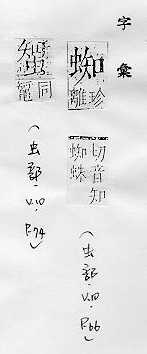 字彙
蜘
珍離
切音知
蜘蛛
(虫部·V.10·P.66)
同
(虫部·V.10·P.74)